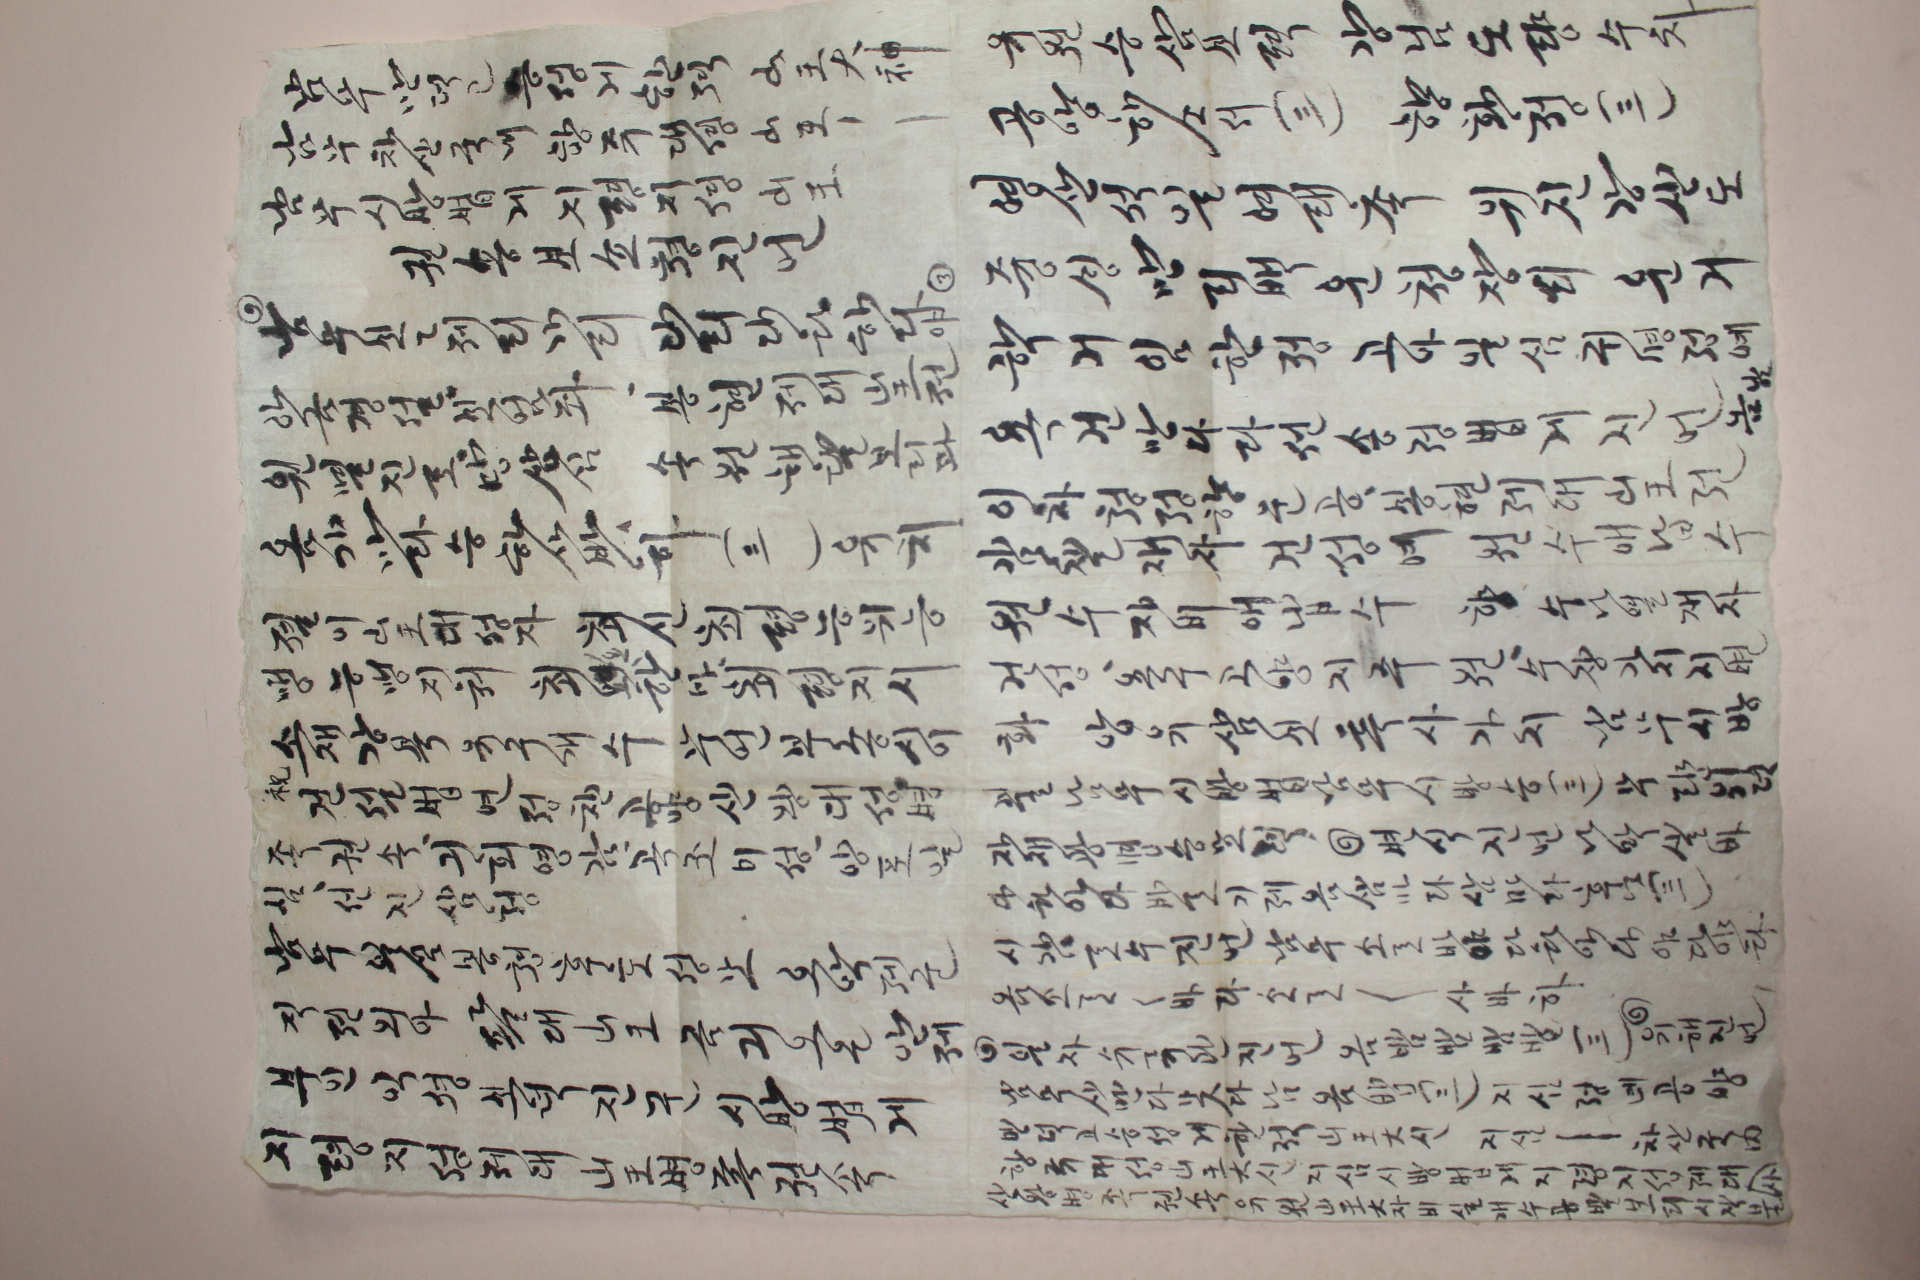 남무만덕고승성게한적 山王大神
남무차산국내항주대셩山王｜
남무시방법게지령지셩山王
권송보쇼쳥진언
남무보보제리가리다리다타하다야 ③
아금경설보엄좌、봉헌제대山王젼
원멸진로망상심 속원해탈보리과
옴가마라승하사바하 (三) 유치
졀이山王대성자 최신최령능위능
맹능맹지쳐 최 한마최령지시
소재강복 유구개수 무언부종시이
祝 건셜법연졍찬공양산왕대성병
죡권속、긔회영감、곡조미셩、앙표일
심、션진삼쳥
남무일심봉쳥후토셩모 오악제군
직젼외아 팔대山王 금긔오온 안졔
부인 익셩보덕진군 시방법게
지령지셩제대山王병죡권속
유원승삼보력 강님도량 수차
공양해소서 (三) 향화쳥 (三)
영산셕일여래촉 위진강산도
즁싱 만리백운쳥쟝리 운거
학거임한졍 고아일심귀명졍례
욕건만다라션송 졍법계진언 옴남
이차쳥졍향운공、봉헌제대山王젼
감찰재쟈건셩예 원수애납수
원수자비애납수 향수나열 재자
건셩、욕구고양지주원、수쟝가지지변
화 앙유삼보 특사가지 남무시방
불 남무시방법 남무시방승 (三) 무량위덕
자재광명승묘력、변식진언 나막살바
다타아다 바로기제 옴삼바라삼마라훔 (三)
시감로수진언 남무소로바야다타아다야다야타
옴소로〱바라소로〱사바하
일자수륜관진언 옴밤밤밤밤 (三) 유해진언
남무사만다못다남옴밤 (三) 지심졍례공양
만덕고승셩개한적山王大신 지심｜차산국內
항주대셩山王大신 지심시방법계지령지셩제대
산왕병죡권속 유원山王大자비실개수공발보리시작불사